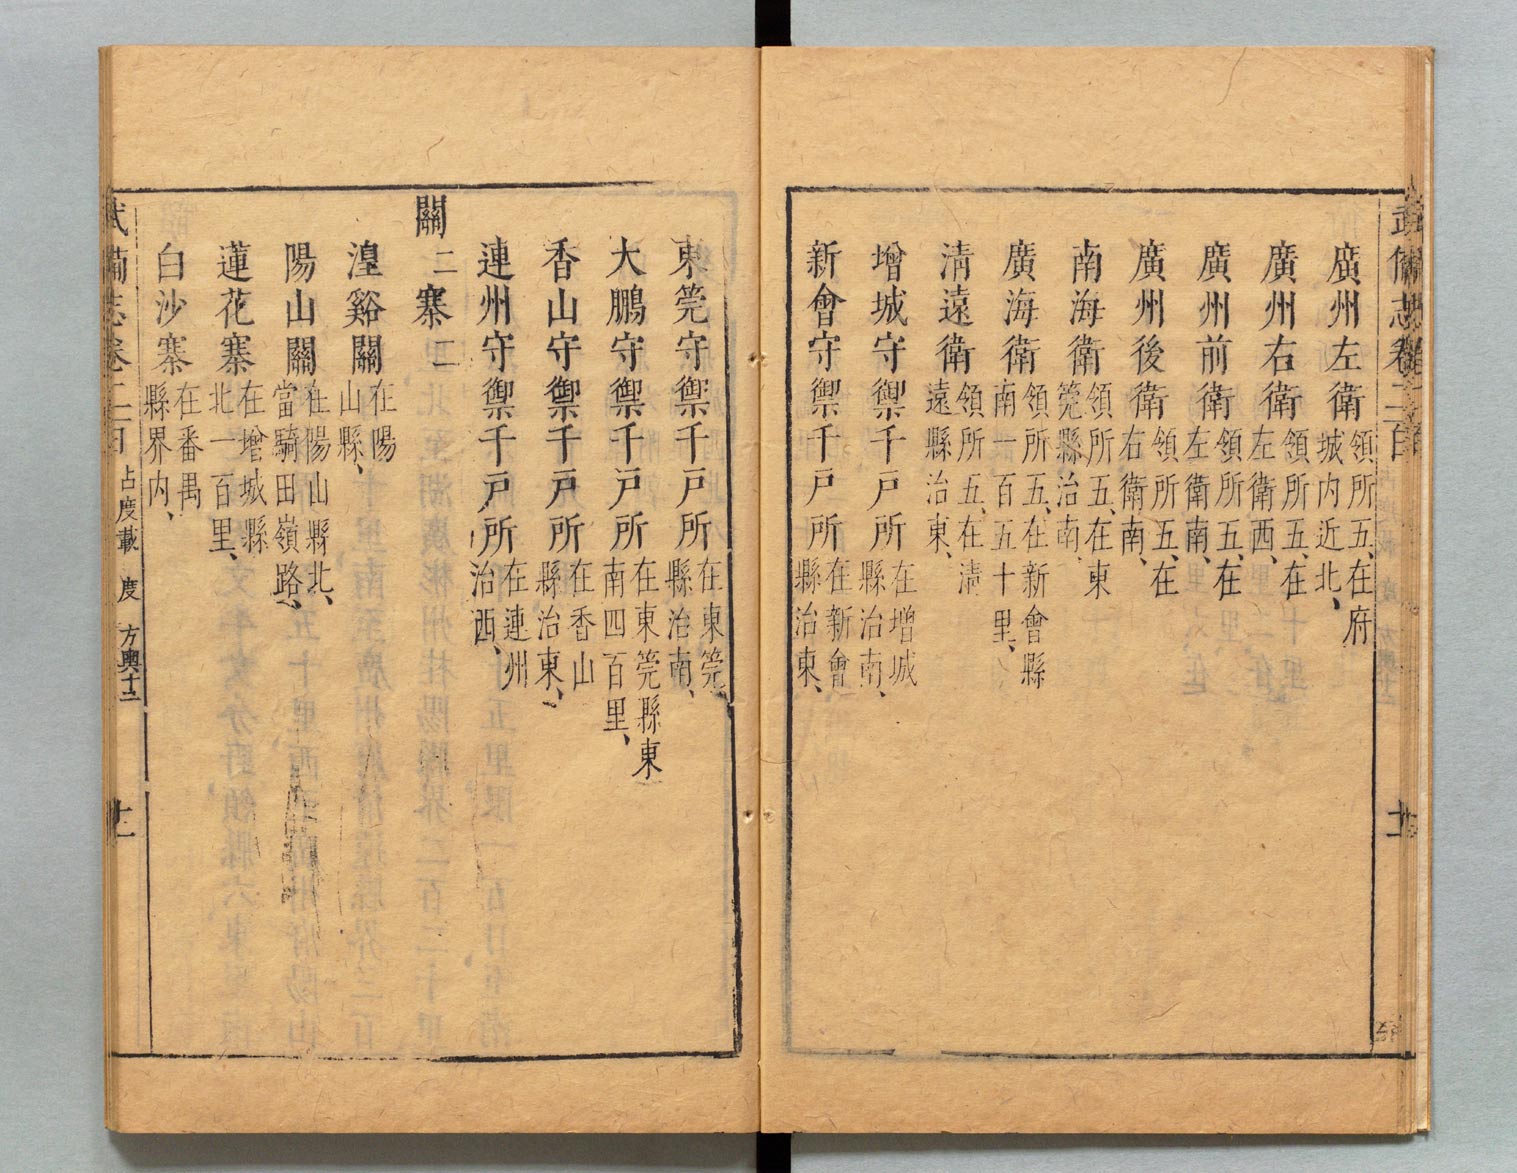 廣州左衛領所五、在府城内近北、
廣州右衛領所五、在左衛西、
廣州前衛領所五、在左衛南、
廣州後衛領所五、在右衛南、
南海衛領所五、在東筦縣治南、
廣海衛領所五、在新會縣南一百五十里、
清遠衛領所五、在清遠縣治東、
增城守禦千戸所在增城縣治南、
新會守禦千戸所在新會縣治東、
東筦守禦千戸所在東筦縣治南、
大鵬守禦千戸所在東筦縣東南四百里、
香山守禦千戸所在香山縣治東、
連州守禦千戸所在連州治西、
關二寨二
湟谿關在陽山縣、
陽山關在陽山縣北、當騎田嶺路、
蓮花寨在增城縣北一百里、
白沙寨在番禺縣界内、
武備志卷二百 占度載 度 方輿十二 十二